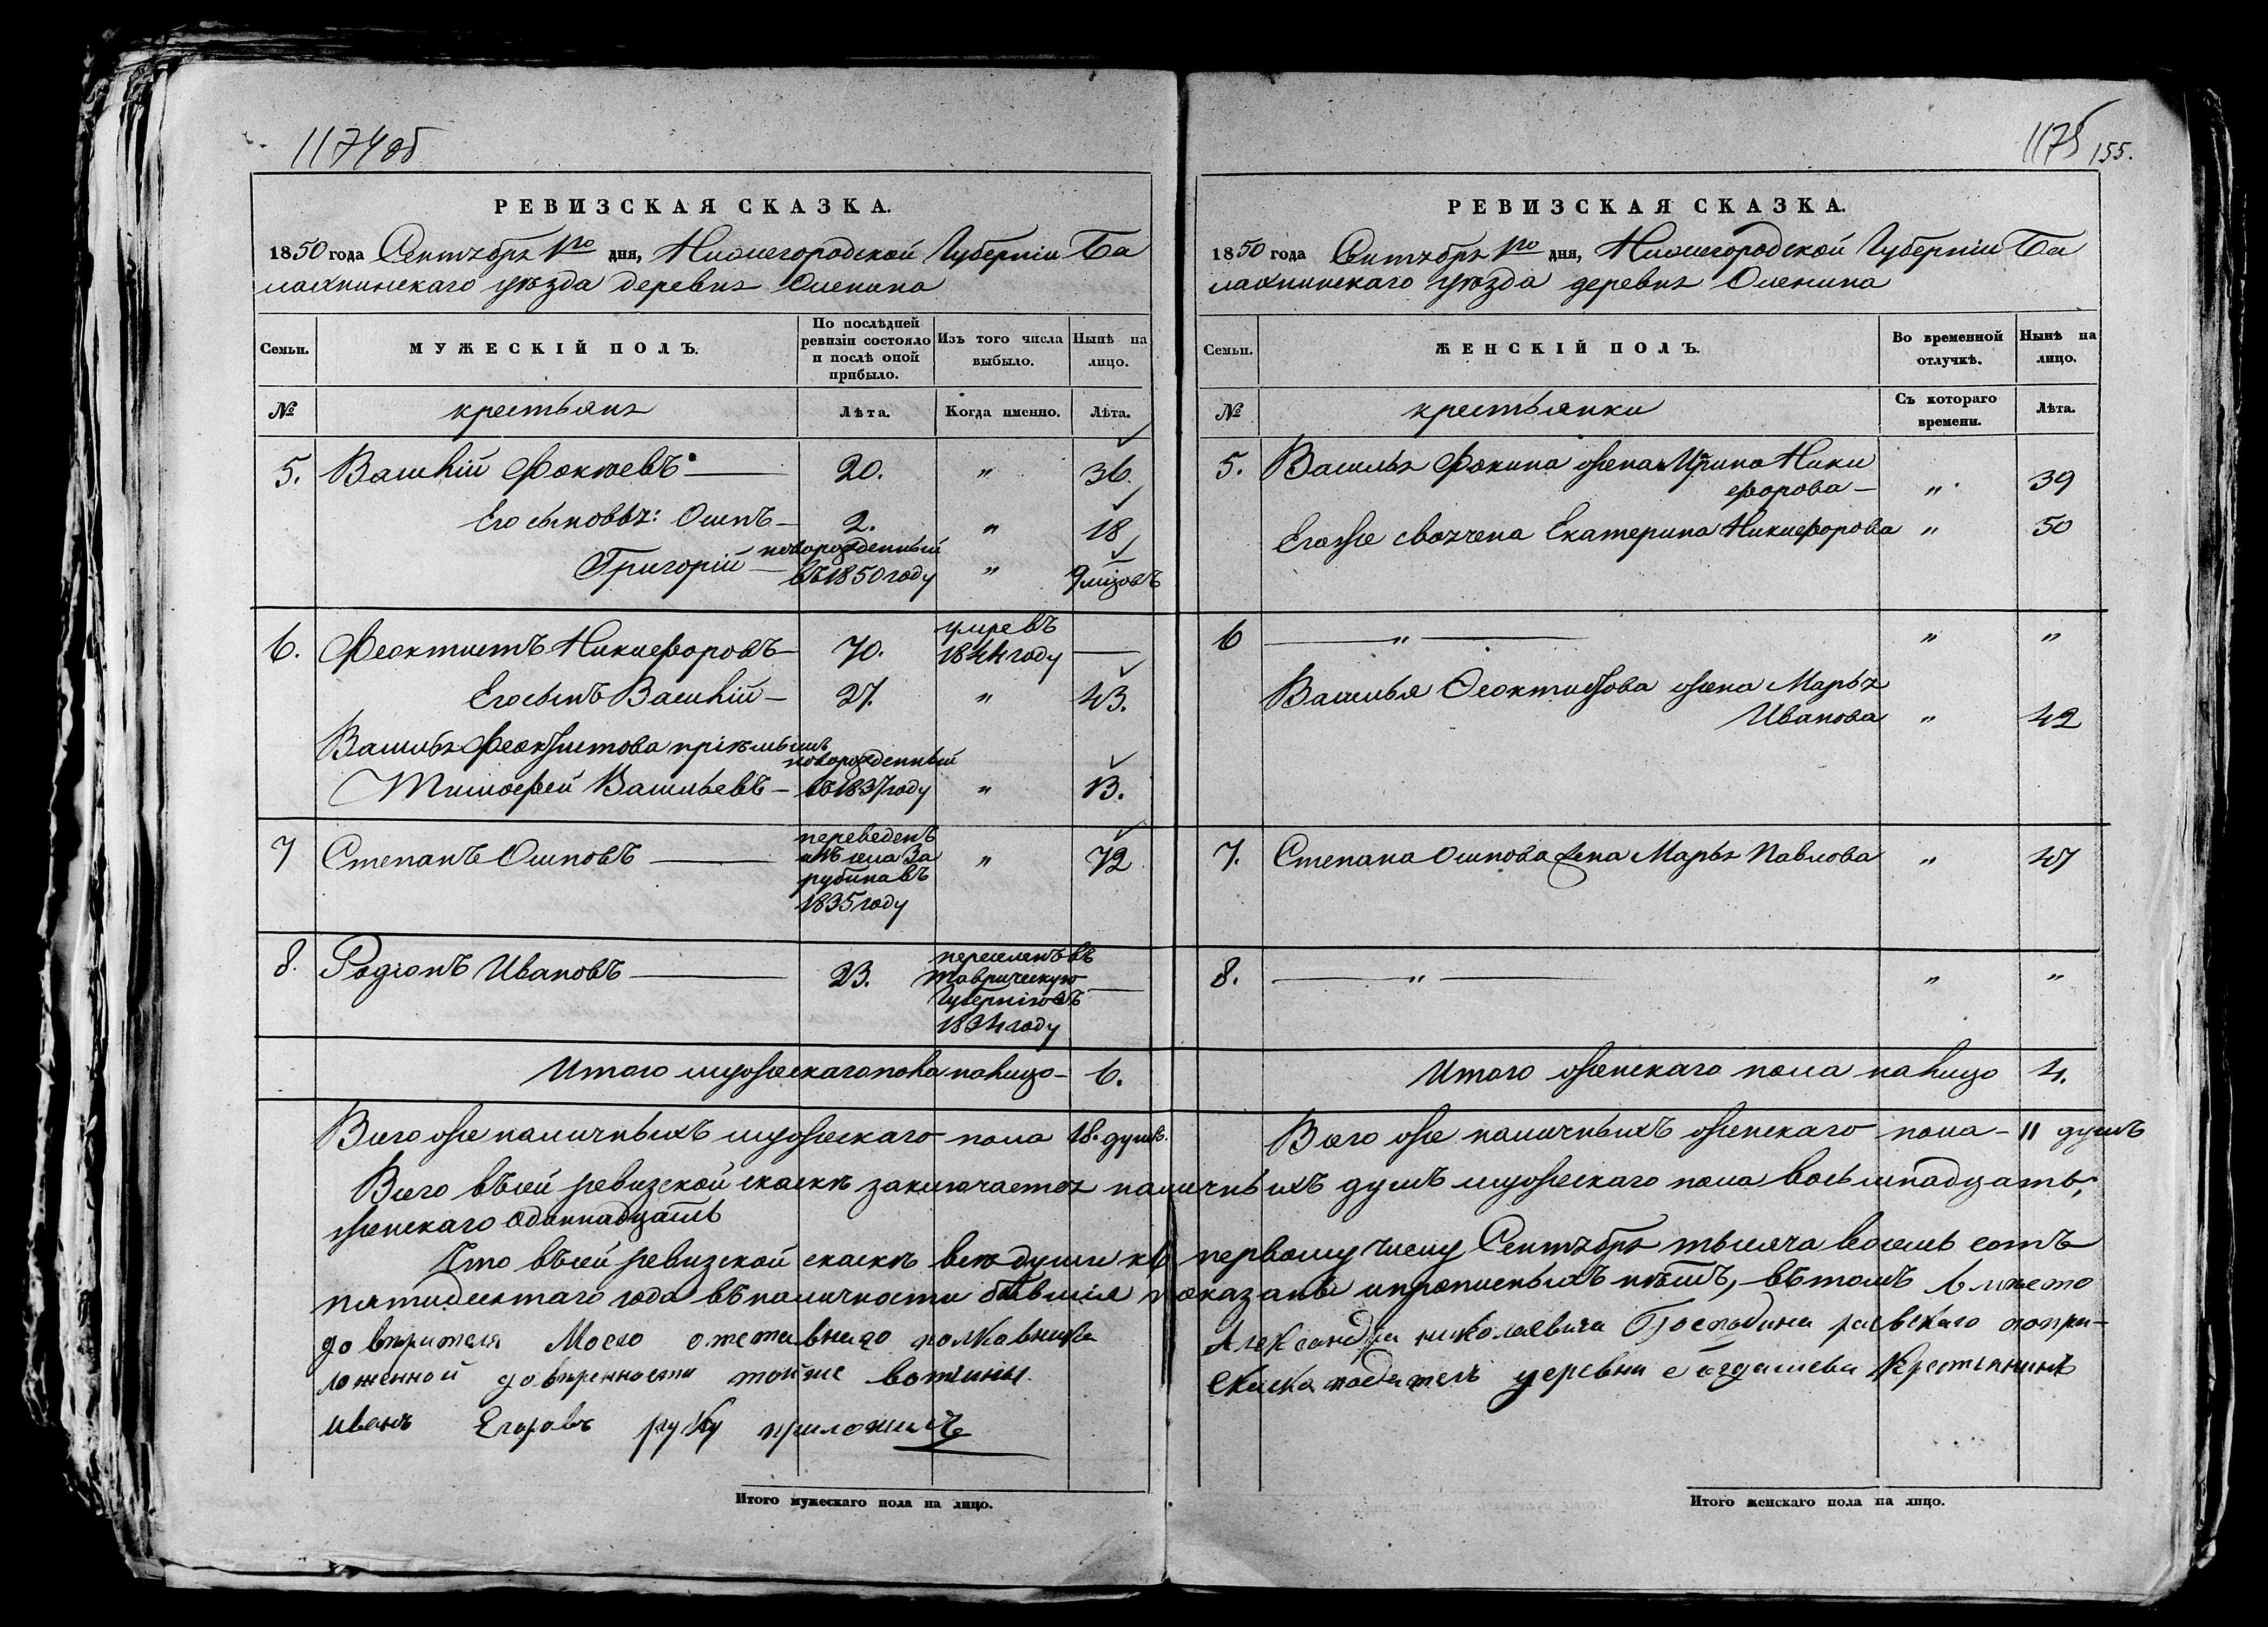 1174об
РЕВИЗСКАЯ СКАЗКА.
1850 года Сентября 1го дня, Нижегородской Губерніи Ба
лахнинскаго уѣзда деревня Оленина
Семьи.
МУЖЕСКІЙ ПОЛЪ.
По послѣдней
ревизіи состояло
и послѣ оной
прибыло.
Изъ того числа
выбыло.
Нынѣ на
лицо.
№ крестьяня Лѣта. Когда именно. Лѣта.
5. Василій Фокѣевъ 20. " 36.
Его сыновья: Осипъ 2. " 18
новорожденный
Григорій въ 1850 году " 9 мѣсяцовъ
умре въ
6. Феоктистъ Никифоровъ 70. 1844 году —
Его сынъ Василій 27. " 43.
Василья Феоктистова пріемышъ
новорожденный
Тимофей Васильевъ въ 1837 году " 13.
переведенъ
7 Степанъ Осиповъ изъ села За " 72
рубина въ
1835 году
переселенъ въ
8. Родіонъ Ивановъ 23. Таврическую —
Губернію въ
1834 году
Итого мужескаго пола на лицо 6.
Всего же наличныхъ мужескаго пола 18. душъ.
1175 155.
РЕВИЗСКАЯ СКАЗКА.
1850 года Сентября 1го дня, Нижегородской Губерніи Ба
лахнинскаго уѣзда деревня Оленина
Семьи.
ЖЕНСКІЙ ПОЛЪ.
Во временной
отлучкѣ.
Нынѣ на
лицо.
№ крестьянки
Съ котораго
времени.
Лѣта.
5. Василья Фокина жена Ирина Ники
форова " 39
Егоже своячена Екатерина Никифорова " 50
6 " " "
Василья Феоктистова жена Марья
Иванова " 42
7. Степана Осипова жена Марья Павлова " 47
8. " " "
Итого женскаго пола на лицо 4.
Всего же наличныхъ женскаго пола 11 душъ
Всего въ сей ревизской скаскѣ заключается наличныхъ душъ мужескаго пола восьмнадцать,
женскаго одиннадцать
Что въ сей ревизской скаскѣ всѣ души къ первому числу Сентября тысяча восемь сотъ
пятидесятаго года въ наличности бывшія показаны и прописныхъ нѣтъ, въ томъ вместо
довѣрителя Моего отставнаго полковника Александра николаевича Господина раевскаго по при-
ложенной довѣренности тойже вотчины Скаска податель деревни крестьянинъ
иванъ Егоровъ руку приложилъ
Итого мужескаго пола на лицо.
Итого женскаго пола на лицо.